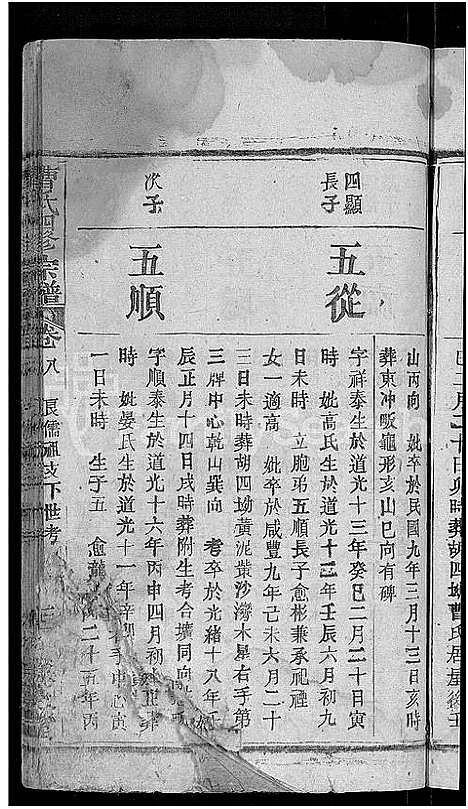 巳二月二十日卯時葬胡四坳曹氏居屋後壬
山丙向 妣卒於民國九年三月十三日亥時
葬東冲畈龜形亥山巳向有碑
四顯長子
五從
字祥泰生於道光十三年癸巳二月二十日寅
時 妣高氏生於道光十二年壬辰六月初九
日未時 立胞弟五順長子愈彬兼承祀禋
女一適高 妣卒於咸豐九年己未六月二十
三日未時葬胡四坳黃泥叢沙灣木星右手第
三牌中心乾山巽向 考卒於光緒十八年壬
辰正月十四日戌時葬附生考合壙同向
次子
五順
字順泰生於道光十六年丙申四月初
時 妣晏氏生於道光十一年辛卯
一日未時 生子五 愈
二十五年丙
手中心寅
曹氏四修宗譜
卷八 長儒
下世考